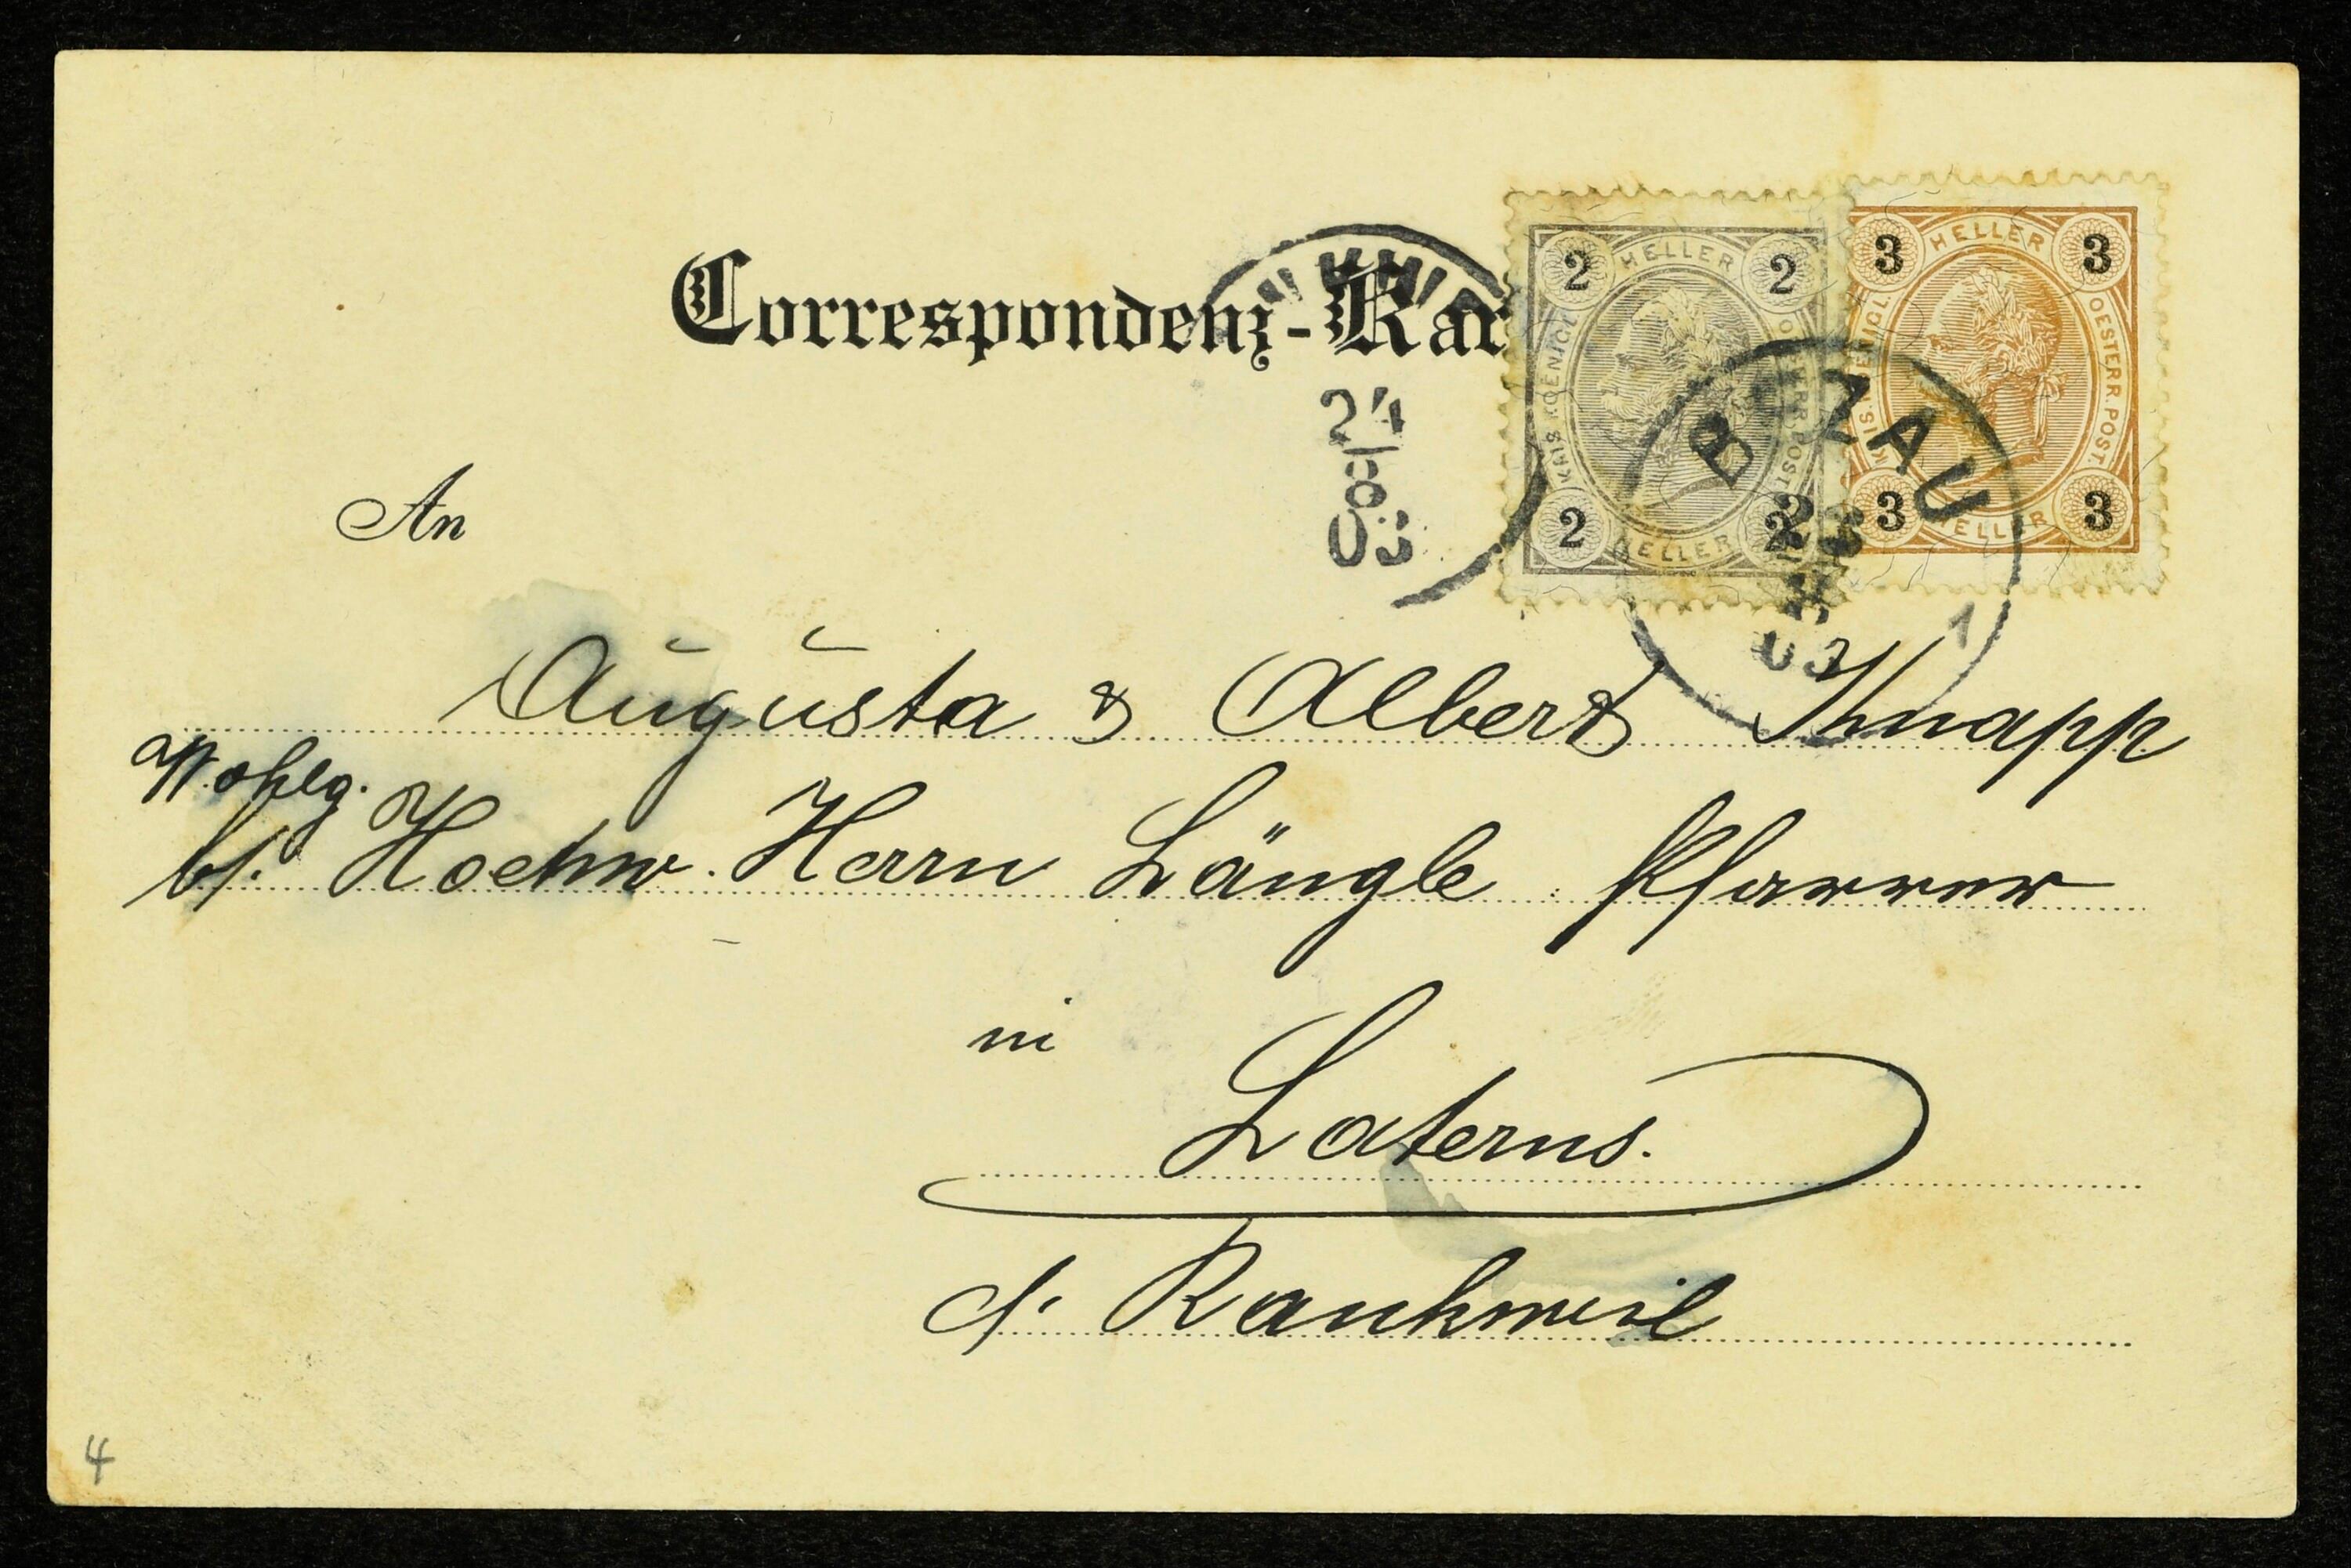 Correspondenz-Kar
2 HELLER 2
KAIS. KOENIGL.
OESTERR. POST.
2 HELLER 2
3 HELLER 3
KAIS. KOENIGL.
OESTERR. POST.
3 HELLER 3
24
8
03
BEZAU
23
8
03
1
An
Augusta & Albert Knapp
Wohlg.
bei Hochw. Herrn Längle Pfarrer
in
Laterns.
b. Rankweil
4